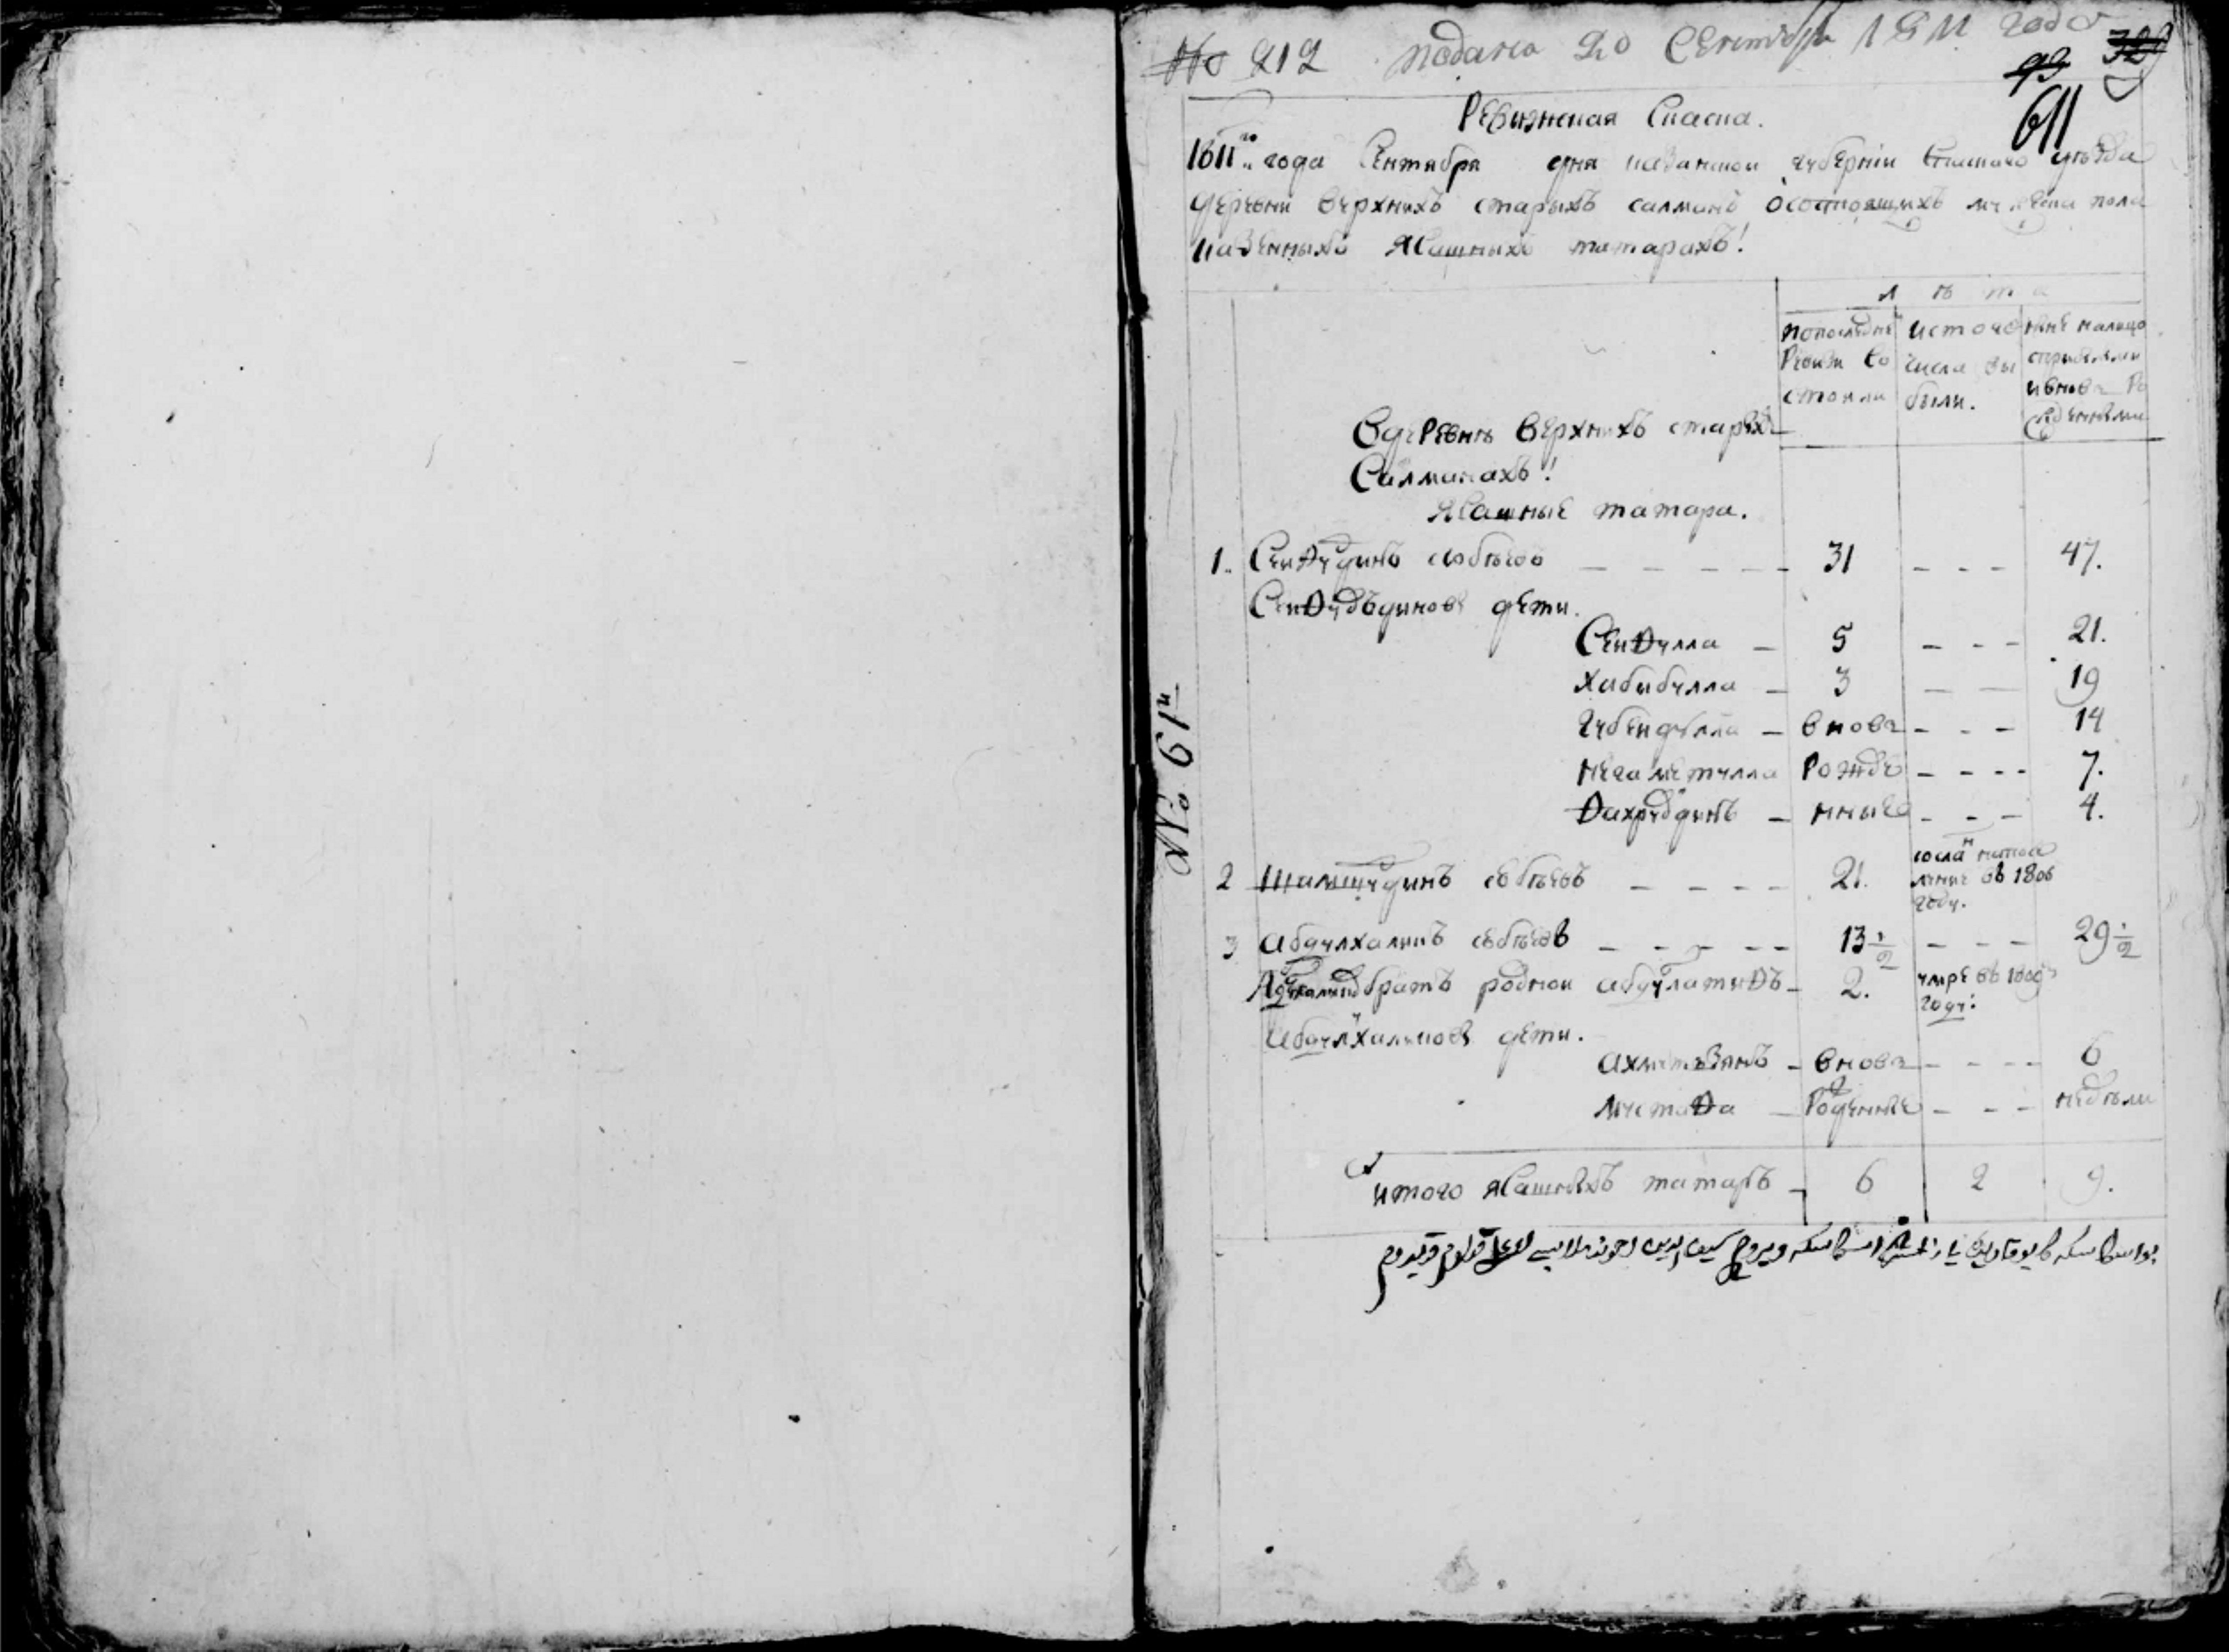 № 212 подана 20 Сентября 1811 года
93 329
611
Ревижская Скаска.
1811го года Сентября дня казанской губернии Спаскаго уезда
деревни верхнихъ старыхъ салманъ осостоящихъ мужеска пола
казенныхъ ясашныхъ татарахъ!
лѣта
попоследней ревизи состояли
истого числа выбыли.
ныне налицо сприбылыми ивновь рожденными
Вдеревнѣ верхнихъ старыхъ
Салманахъ!
ясашные татара.
1. Сейѳудинъ собѣевъ 31 47.
Сейѳудъдиновы дети.
Сейѳулла 5 21.
Хабибулла 3 19
губейдулла вновь 14
негаметулла рожде 7.
Ѳахрудинъ нные 4.
2 Шамшудинъ собѣевъ 21. сосланъ напоселение въ 1806 году.
3 абдулхаликъ собѣевъ 13½ 29½
братъ роднои абдулатиѳъ 2. умре въ 1809 году:
абдулхаликовы дети.
ахметьзянъ вновь 6
мустаѳа рожденные недѣли
итого ясашныхъ татаръ 6 2 9.
№ 61й